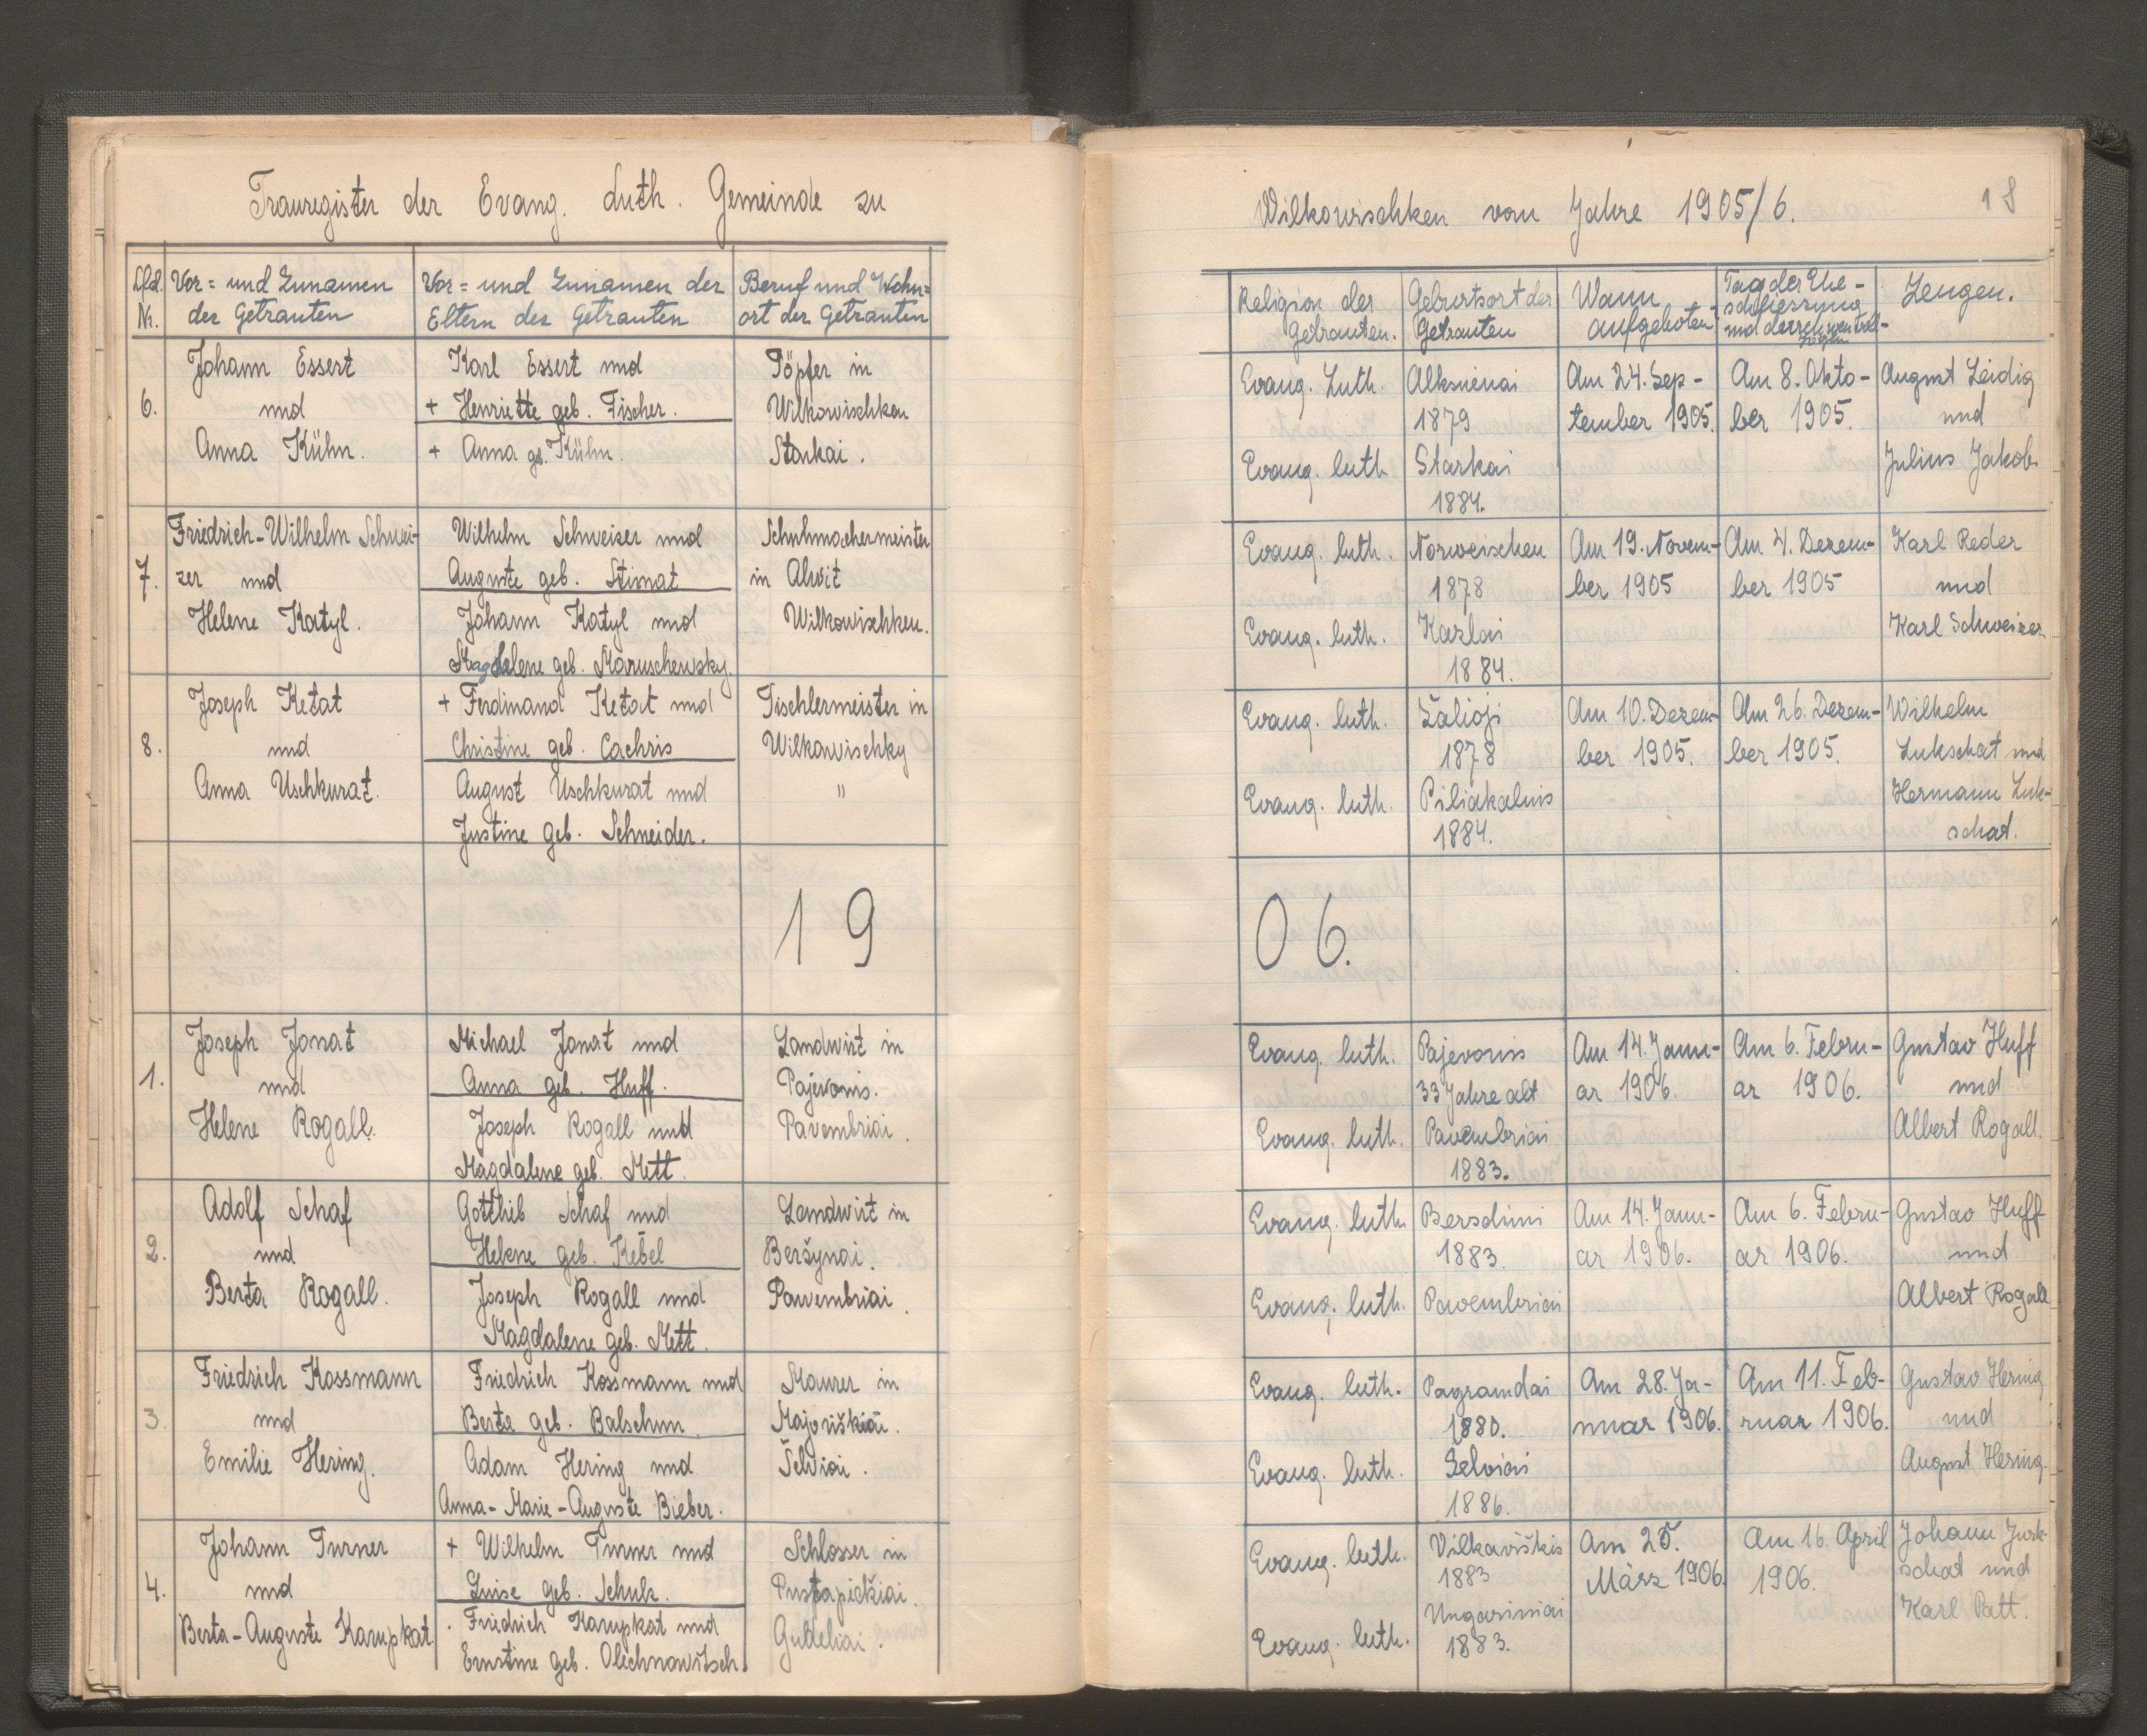 Trauregister der Evang. Luth. Gemeinde zu
Lfd. Nr.
Vor= und Zunamen
der Getrauten
Vor= und Zunamen der
Eltern der Getrauten
Beruf und Wohn=
ort der Getrauten
6.
Johann Essert
und
Anna Kühn.
Karl Essert und
+ Henriette geb. Fischer.
+ Anna geb. Kühn.
Töpfer in
Wilkowischken
Starkai.
7.
Friedrich-Wilhelm Schwei-
zer und
Helene Katyl.
Wilhelm Schweizer und
Auguste geb. Stimat
Johann Katyl und
Magdalene geb. Maruschewsky.
Schuhmachermeister
in Alvit
Wilkowischken.
8.
Joseph Ketat
und
Anna Uschkurat.
+ Ferdinand Ketat und
Christine geb. Cachris
August Uschkurat und
Justine geb. Schneider.
Tischlermeister in
Wilkowischky
"
19
1.
Joseph Jonat
und
Helene Rogall.
Michael Jonat und
Anna geb. Huff.
Joseph Rogall und
Magdalene geb. Mett.
Landwirt in
Pajevonis.
Pavembriai.
2.
Adolf Schaf
und
Berta Rogall.
Gottlieb Schaf und
Helene geb. Kebel
Joseph Rogall und
Magdalene geb. Mett.
Landwirt in
Beršynai.
Pavembriai.
3.
Friedrich Kossmann
und
Emilie Hering.
Friedrich Kossmann und
Berta geb. Balschun
Adam Hering und
Anna-Marie-Auguste Bieber.
Maurer in
Majoriškiai.
Šelviai.
4.
Johann Turner
und
Berta-Auguste Karupkat
+ Wilhelm Turner und
Luise geb. Schulz.
Friedrich Karupkat und
Ernstine geb. Olechnowitsch.
Schlosser in
Pustapiečkiai.
Gudeliai.
Wilkowischken vom Jahre 1905/6.
18
Religion der
Getrauten.
Geburtsort der
Getrauten
Wann
aufgeboten
Tag der Ehe-
schliessung
Zeugen.
Evang. Luth.
Evang. luth
Alksnenai
1879
Starkai
1884.
Am 24. Sep-
tember 1905.
Am 8. Okto-
ber 1905.
August Leidig
und
Julius Jakob.
Evang. luth.
Evang. luth.
Norweischen
1878
Kazlai
1884.
Am 19. Novem-
ber 1905
Am 4. Dezem-
ber 1905
Karl Reder
und
Karl Schweizer
Evang. luth.
Evang. luth.
Žalioji
1878
Piliakalnis
1884.
Am 10. Dezem-
ber 1905.
Am 26. Dezem-
ber 1905.
Wilhelm
Lukschat und
Hermann Luk-
schat.
06.
Evang. luth.
Evang. luth.
Pajevonis
33 Jahre alt
Pavembriai
1883.
Am 14. Janu-
ar 1906.
Am 6. Febru-
ar 1906.
Gustav Huff
und
Albert Rogall.
Evang. luth.
Evang. luth.
Berschini
1883.
Pavembriai
Am 14. Janu-
ar 1906.
Am 6. Febru-
ar 1906.
Gustav Huff
und
Albert Rogall
Evang. luth.
Evang. luth.
Pagramdai
1880.
Šelviai
1886.
Am 28. Ja-
nuar 1906.
Am 11. Feb-
ruar 1906.
Gustav Hering
und
August Hering.
Evang. luth.
Evang. luth.
Vilkaviškis
1883
Ungariniai
1883.
Am 25.
März 1906.
Am 16. April
1906.
Johann Jusk-
schat und
Karl Patt.